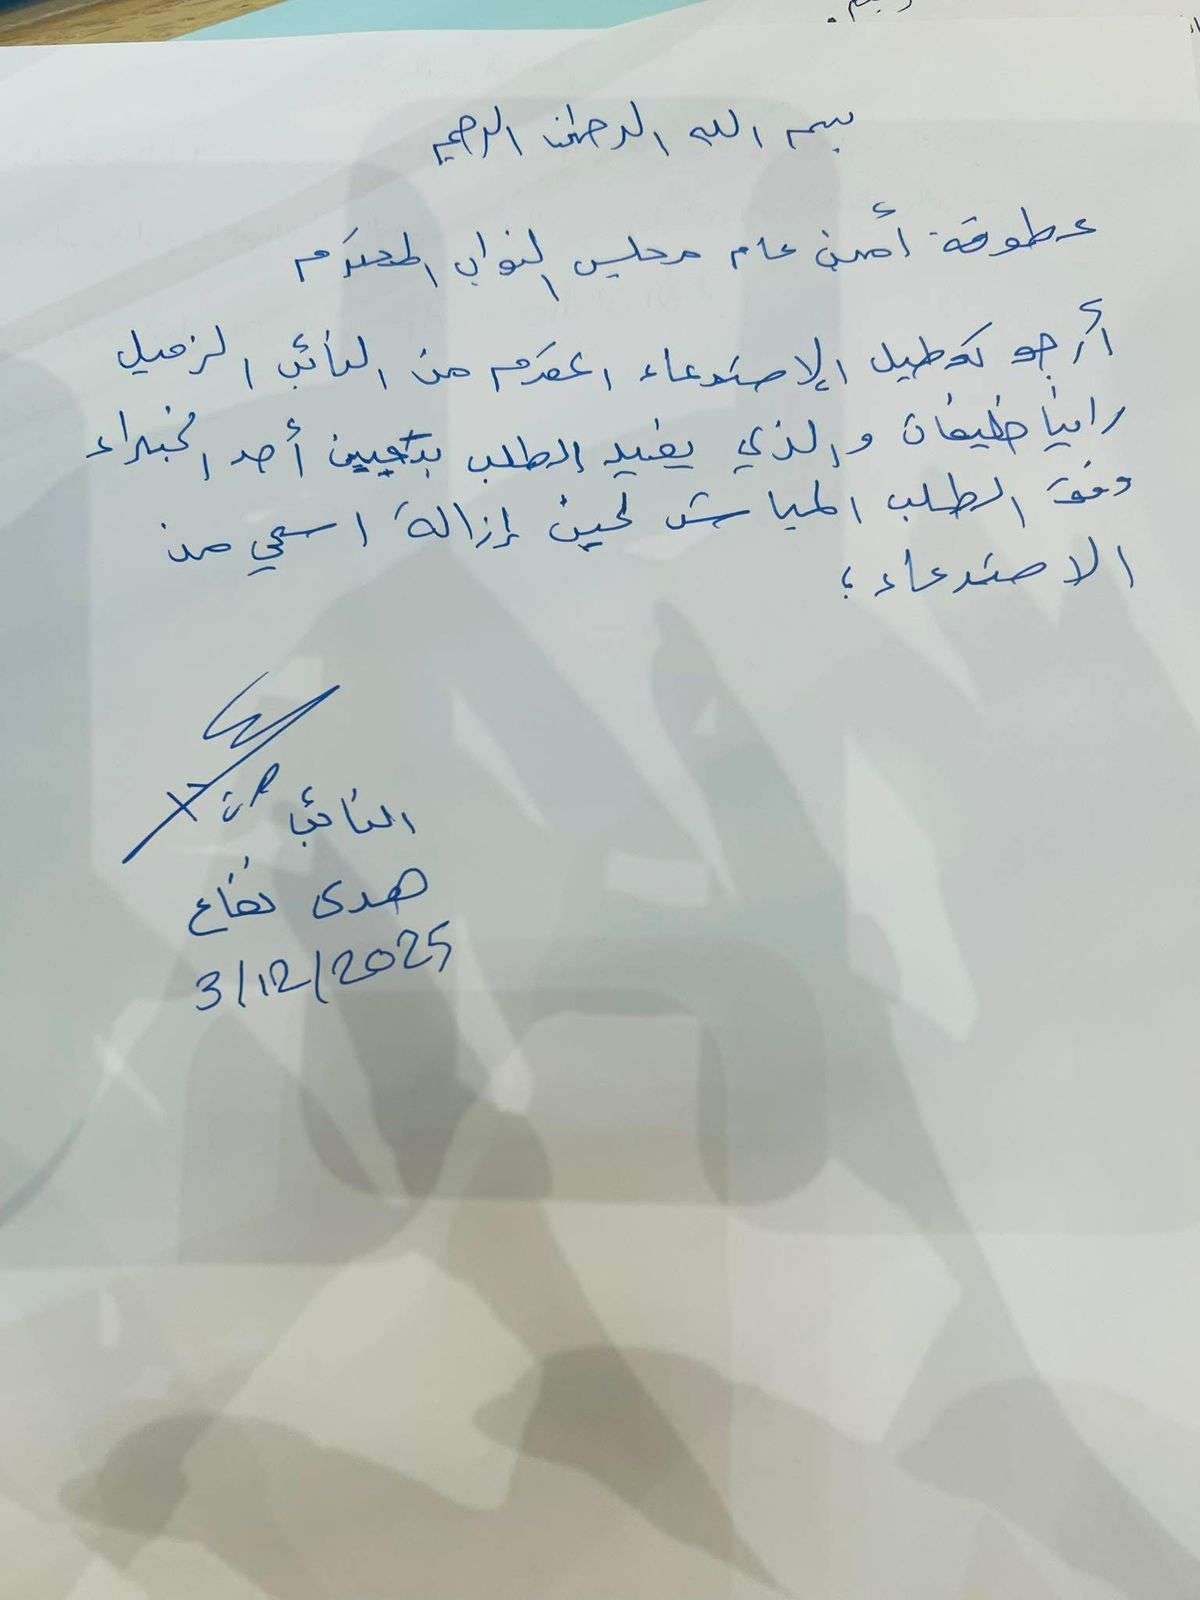 بسم الله الرحمن الرحيم
عطوفة أمين عام مجلس النواب المحترم
أرجو تعطيل الإستدعاء المقدم من النائب الزميل
رانيا خليفات والذي يفيد الطلب بتعيين أحد الخبراء
وفق الطلب المباشر لحين إزالة اسمي من
الاستدعاء؛
النائب
هدى نفاع
3/12/2025